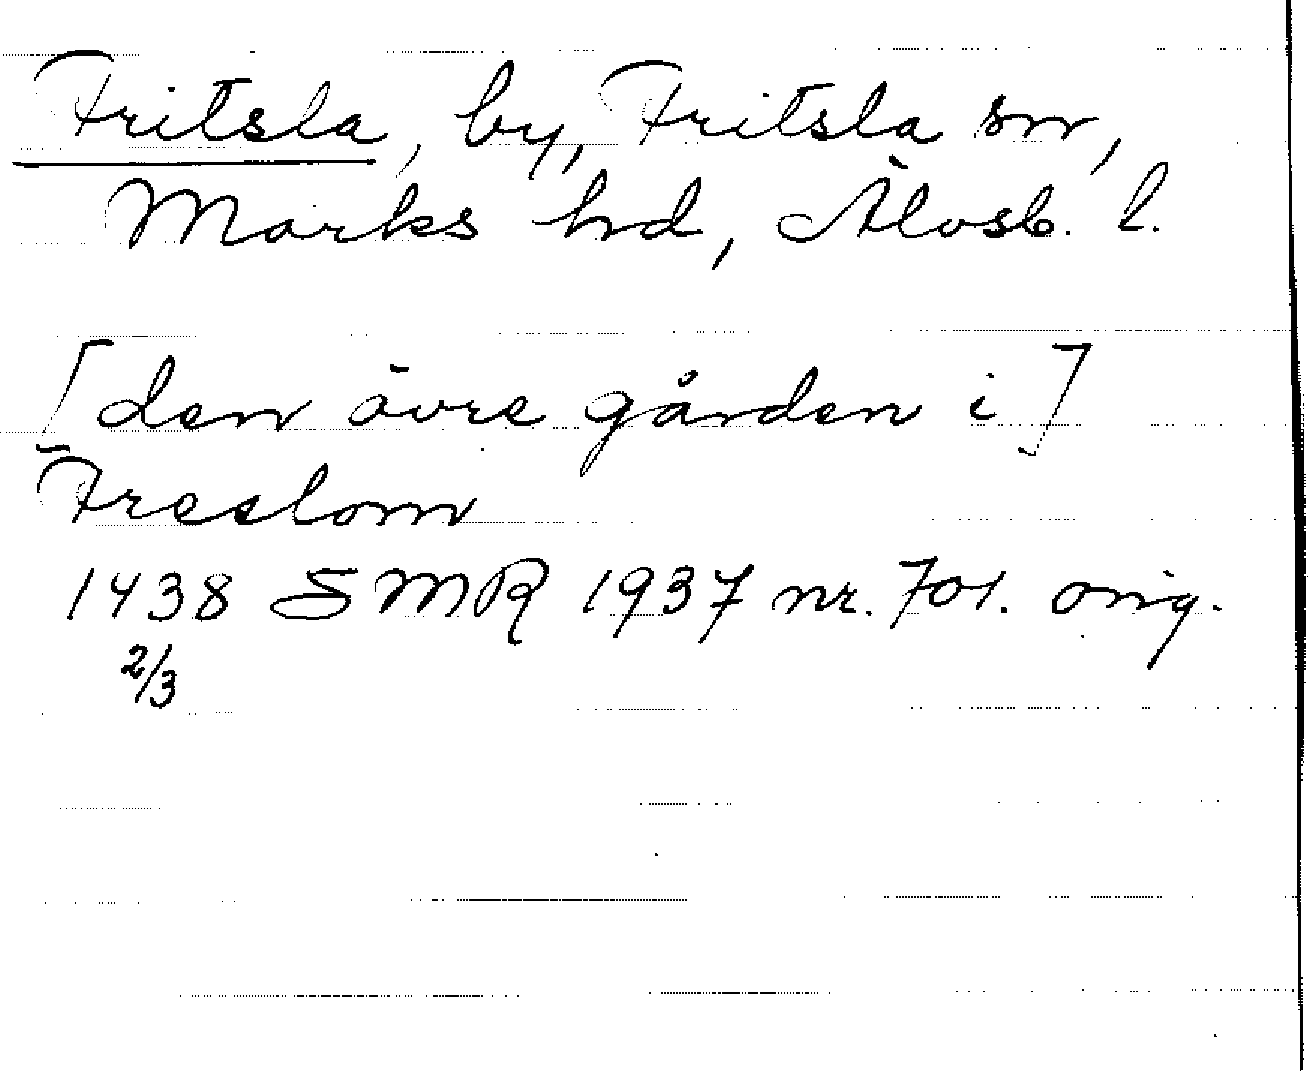 Fritsla, by, Fritsla sn,
Marks hd, Älvsb. l.
[den övre gården i]
Freslom
1438 SMR 1937 nr. 701. orig.
2/3